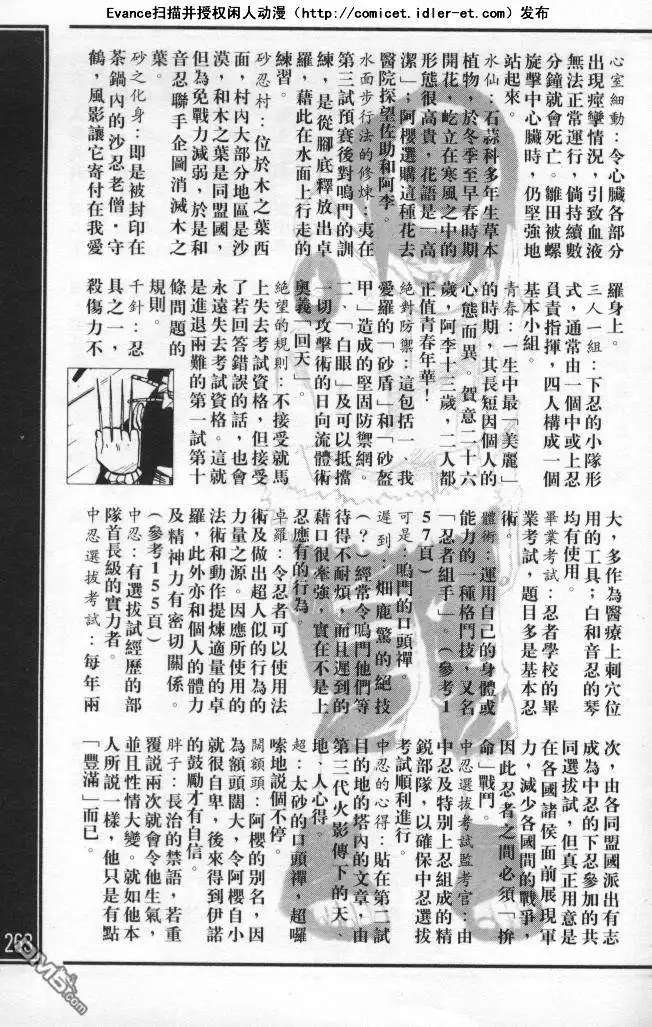 Evance扫描并授权闲人动漫（http://comicet.idler-et.com）发布
心室細動：令心臟各部分
出現痙攣情況，引致血液
無法正常運行，倘持續數
分鐘就會死亡。雛田被螺
旋擊中心臟時，仍堅強地
站起來。
水仙：石蒜科多年生草本
植物，於冬季至早春時期
開花，屹立在寒風之中的
形態很高貴，花語是「高
潔」；阿櫻選購這種花去
醫院探望佐助和阿李。
水面步行法的修煉：夷在
第三試預賽後對鳴門的訓
練，是從腳底釋放出卓
羅，藉此在水面上行走的
練習。
砂忍村：位於木之葉西
面，村內大部分地區是沙
漠，和木之葉是同盟國，
但為免戰力減弱，於是和
音忍聯手企圖消滅木之
葉。
砂之化身：即是被封印在
茶鍋內的沙忍老僧·守
鶴，風影讓它寄付在我愛
羅身上。
三人一組：下忍的小隊形
式，通常由一個中或上忍
負責指揮，四人構成一個
基本小組。
青春：一生中最「美麗」
的時期，其長短因個人的
心態而異。賀意二十六
歲，阿李十三歲，二人都
正值青春年華！
絕對防禦：這包括一、我
愛羅的「砂盾」和「砂盔
甲」造成的堅固防禦網。
二、「白眼」及可以抵擋
一切攻擊術的日向流體術
奧義「回天」。
絕望的規則：不接受就馬
上失去考試資格，但接受
了若回答錯誤的話，也會
永遠失去考試資格。這就
是進退兩難的第一試第十
條問題的
規則。
千針：忍
具之一，
殺傷力不
大，多作為醫療上刺穴位
用的工具；白和音忍的琴
均有使用。
畢業考試：忍者學校的畢
業考試，題目多是基本忍
術。
體術：運用自己的身體或
能力的一種格鬥技，又名
「忍者組手」。（參考1
57頁）
可是：鳴門的口頭禪
遲到：畑鹿驚的絕技
（？）經常令鳴門他們等
待得不耐煩，而且遲到的
藉口很牽強，實在不是上
忍應有的行為。
卓羅：令忍者可以使用法
術及做出超人似的行為的
力量之源。因應所使用的
法術和動作提煉適量的卓
羅，此外亦和個人的體力
及精神力有密切關係。
（參考155頁）
中忍：有選拔試經歷的部
隊首長級的實力者。
中忍選拔考試：每年兩
次，由各同盟國派出有志
成為中忍的下忍參加的共
同選拔試，但真正用意是
在各國諸侯面前展現軍
力，減少各國間的戰爭，
因此忍者之間必須「拚
命」戰鬥。
中忍選拔考試監考官：由
中忍及特別上忍組成的精
銳部隊，以確保中忍選拔
考試順利進行。
中忍的心得：貼在第二試
目的地的塔內的文章，由
第三代火影傳下的天、
地、人心得。
超：太砂的口頭禪，超囉
嗦地說個不停。
闊額頭：阿櫻的別名，因
為額頭闊大，令阿櫻自小
就很自卑，後來得到伊諾
的鼓勵才有自信。
胖子：長治的禁語，若重
覆說兩次就會令他生氣，
並且性情大變。就如他本
人所說一樣，他只是有點
「豐滿」而已。